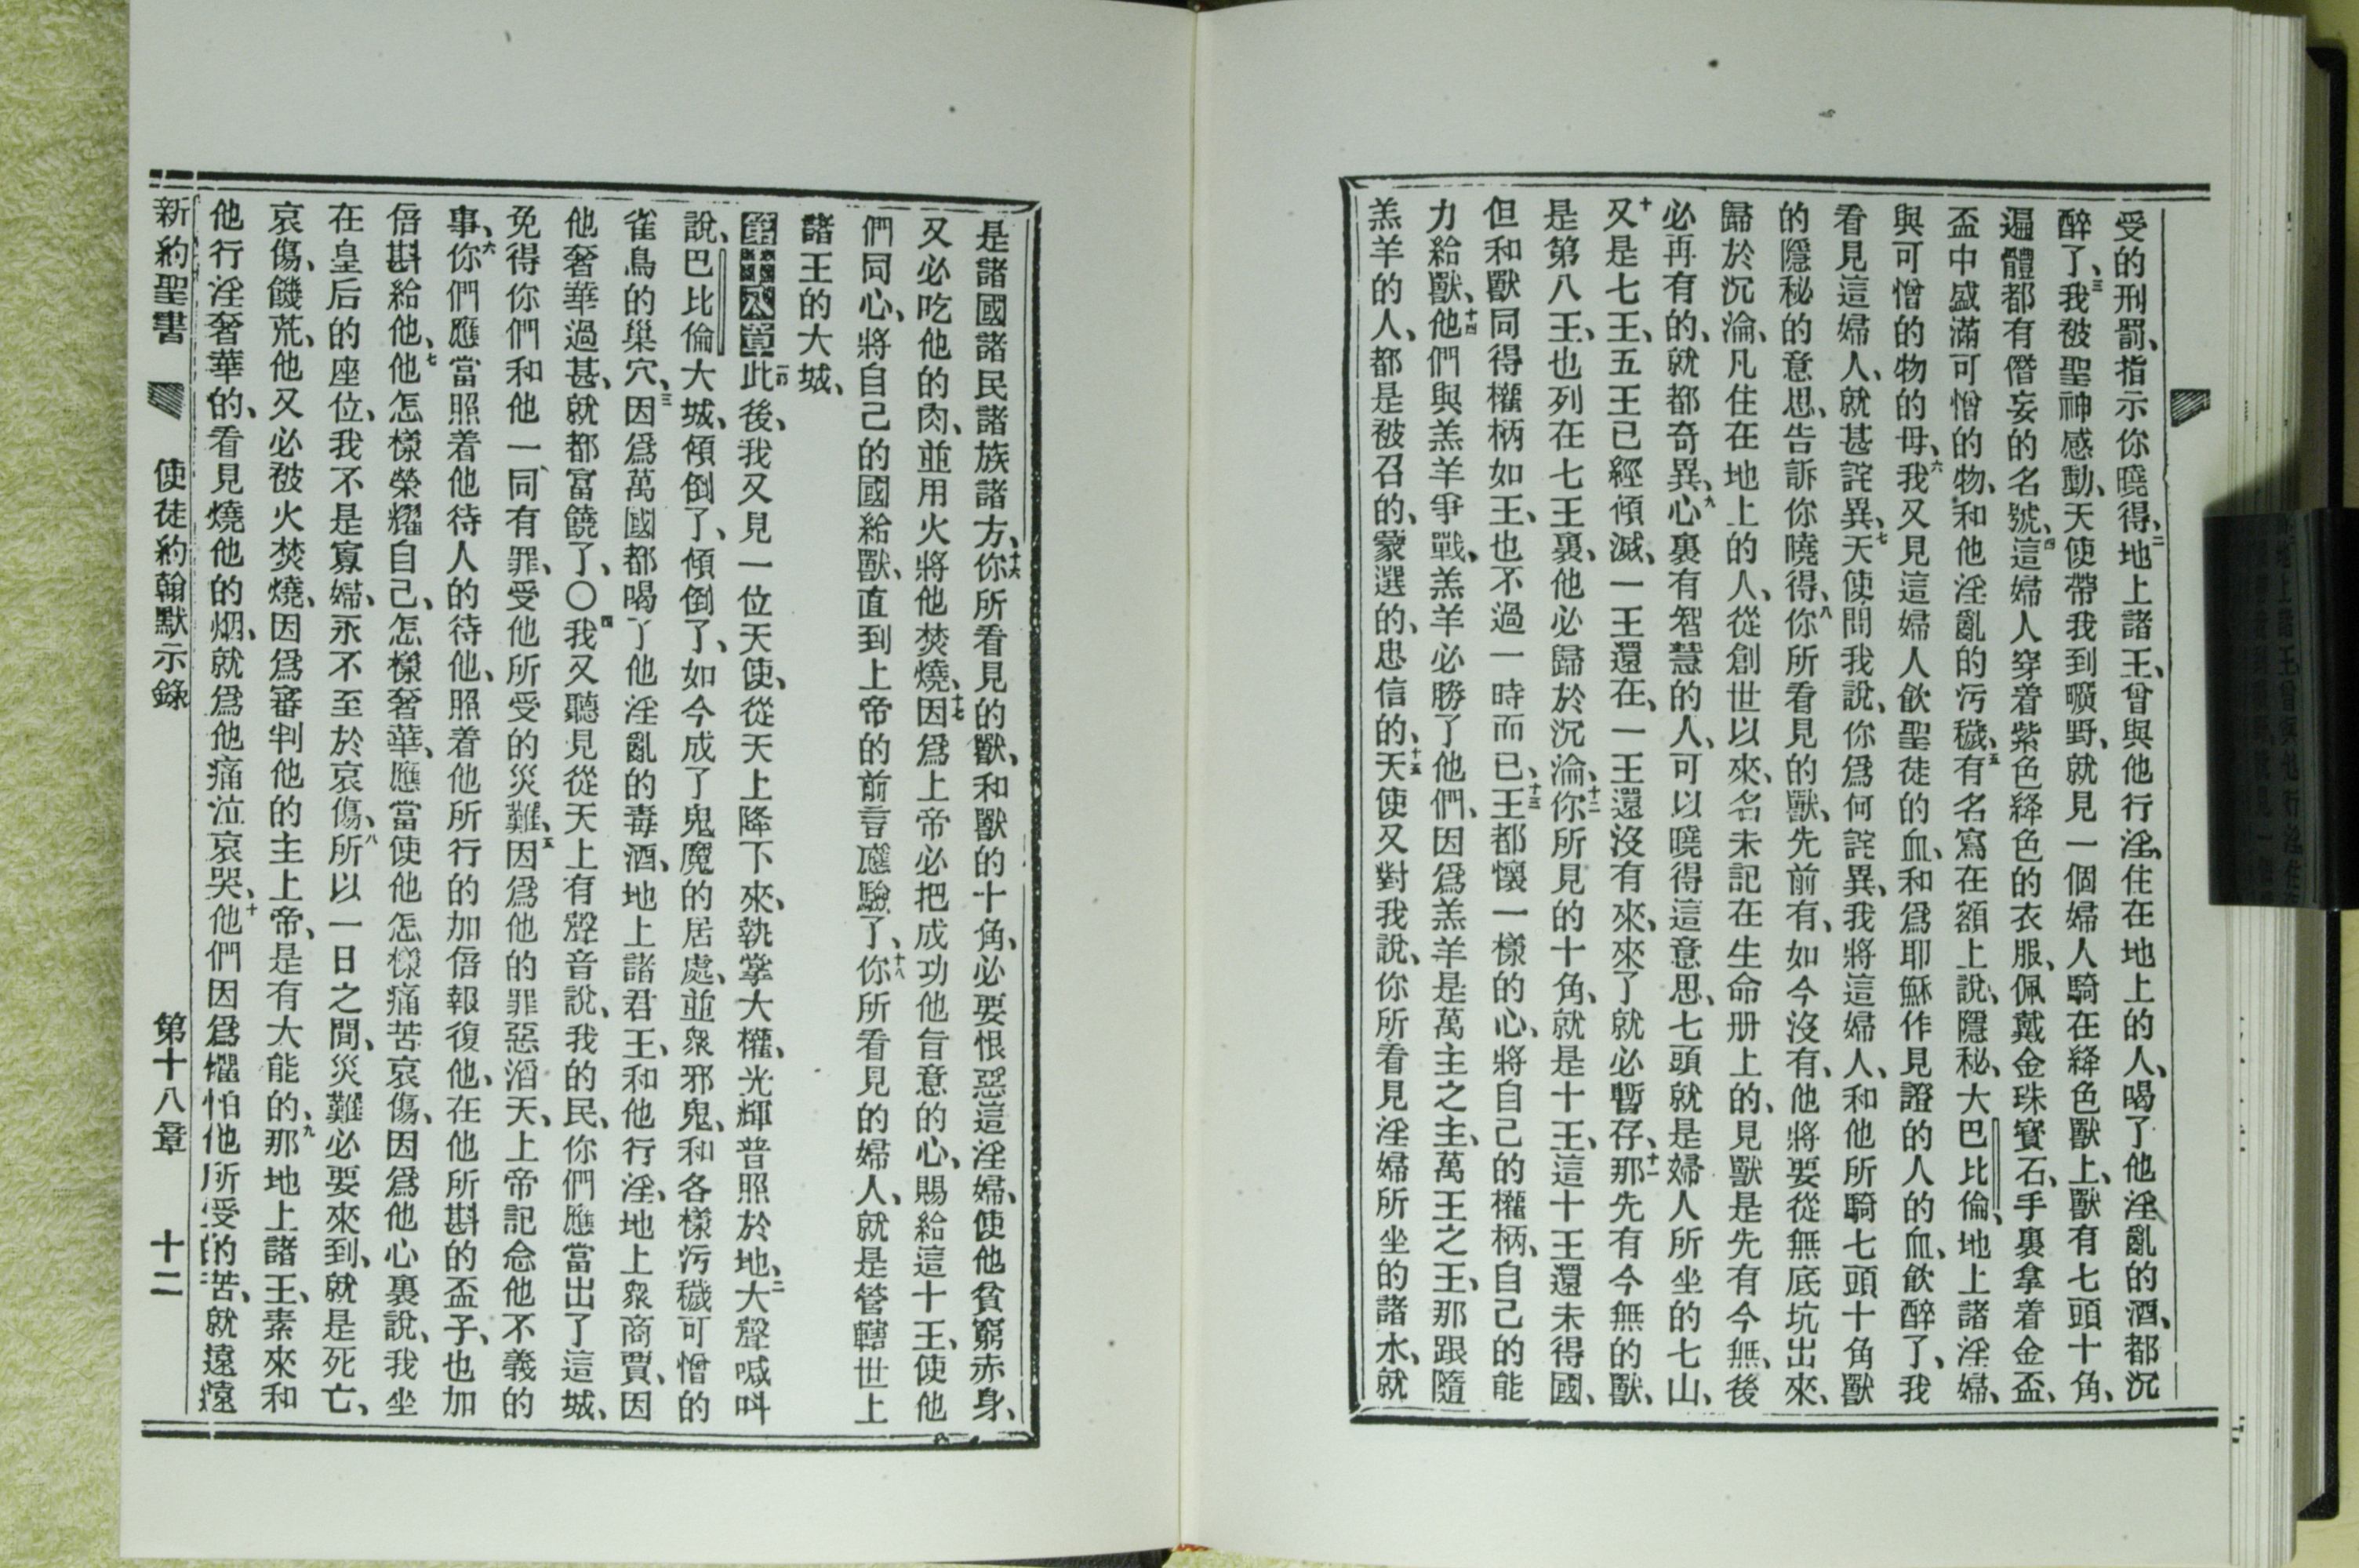 受的刑罰、指示你曉得、二地上諸王、曾與他行淫、住在地上的人、喝了他淫亂的酒、都沉
醉了、三我被聖神感動、天使帶我到曠野、就見一個婦人騎在絳色獸上、獸有七頭十角、
遍體都有僭妄的名號、四這婦人穿着紫色絳色的衣服、佩戴金珠寶石、手裏拿着金盃、
盃中盛滿可憎的物、和他淫亂的污穢、五有名寫在額上說、隱秘、大巴比倫、地上諸淫婦、
與可憎的物的母、六我又見這婦人飲聖徒的血、和爲耶穌作見證的人的血、飲醉了、我
看見這婦人、就甚詫異、七天使問我說、你爲何詫異、我將這婦人、和他所騎七頭十角獸
的隱秘的意思、告訴你曉得、八你所看見的獸、先前有、如今沒有、他將要從無底坑出來、
歸於沉淪、凡住在地上的人、從創世以來、名未記在生命册上的、見獸是先有今無、後
必再有的、就都奇異、九心裏有智慧的人、可以曉得這意思、七頭就是婦人所坐的七山、
十又是七王、五王已經傾滅、一王還在、一王還沒有來、來了就必暫存、十一那先有今無的獸、
是第八王、也列在七王裏、他必歸於沉淪、十二你所見的十角、就是十王、這十王還未得國、
但和獸同得權柄如王、也不過一時而已、十三王都懷一樣的心、將自己的權柄、自己的能
力給獸、十四他們與羔羊爭戰、羔羊必勝了他們、因爲羔羊是萬主之主、萬王之王、那跟隨
羔羊的人、都是被召的、蒙選的、忠信的、十五天使又對我說、你所看見淫婦所坐的諸水、就
是諸國諸民諸族諸方、十六你所看見的獸、和獸的十角、必要恨惡這淫婦、使他貧窮赤身、
又必吃他的肉、並用火將他焚燒、十七因爲上帝必把成功他旨意的心、賜給這十王、使他
們同心、將自己的國給獸、直到上帝的前言應驗了、十八你所看見的婦人、就是管轄世上
諸王的大城、
第十八章一此後、我又見一位天使、從天上降下來、執掌大權、光輝普照於地、二大聲喊叫
說、巴比倫大城、傾倒了、傾倒了、如今成了鬼魔的居處、並衆邪鬼、和各樣污穢可憎的
雀鳥的巢穴、三因爲萬國都喝了他淫亂的毒酒、地上諸君王、和他行淫、地上衆商賈、因
他奢華過甚、就都富饒了、〇四我又聽見從天上有聲音說、我的民、你們應當出了這城、
免得你們和他一同有罪、受他所受的災難、五因爲他的罪惡滔天、上帝記念他不義的
事、六你們應當照着他待人的待他、照着他所行的加倍報復他、在他所斟的盃子、也加
倍斟給他、七他怎樣榮耀自己、怎樣奢華、應當使他怎樣痛苦哀傷、因爲他心裏說、我坐
在皇后的座位、我不是寡婦、永不至於哀傷、八所以一日之間、災難必要來到、就是死亡、
哀傷、饑荒、他又必被火焚燒、因爲審判他的主上帝、是有大能的、九那地上諸王、素來和
他行淫奢華的、看見燒他的烟、就爲他痛泣哀哭、十他們因爲懼怕他所受的苦、就遠遠
新約聖書 使徒約翰默示錄 第十八章 十二